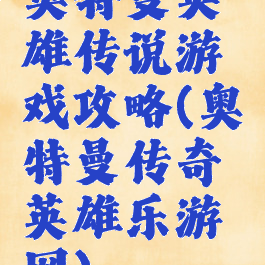 奥特曼英
雄传说游
戏攻略(奥
特曼传奇
英雄乐游
网)